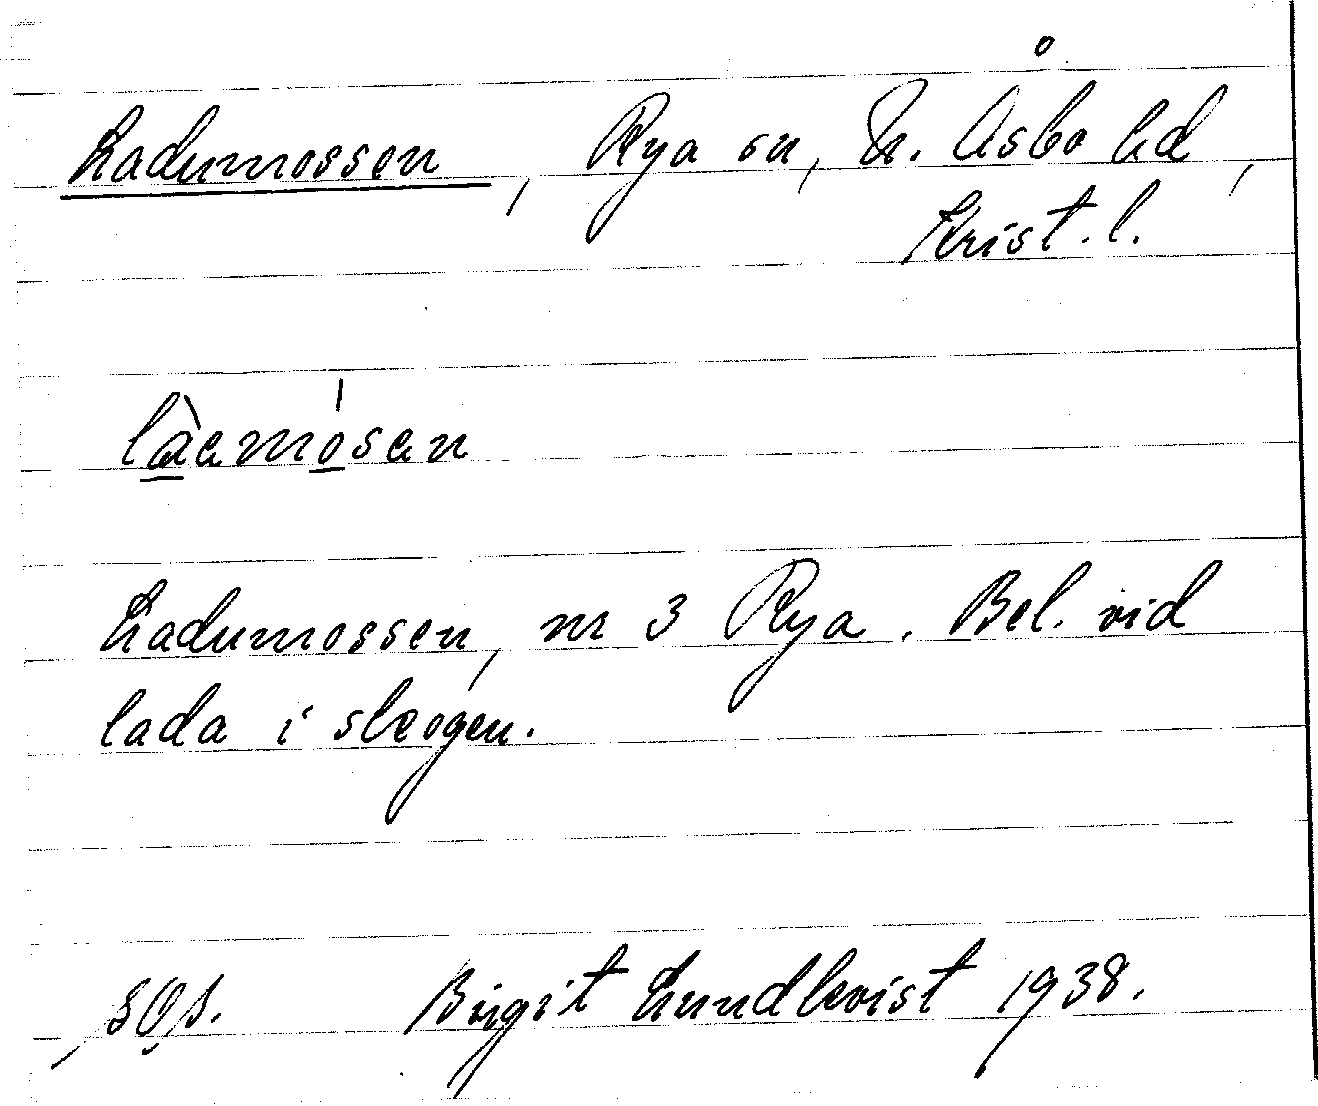 Ladumossen, Rya sn, N. Åsbo hd,
Krist. l.
làemósen
Ladumossen, nr 3 Rya. Bel. vid
lada i skogen.
Birgit Lundkvist 1938.